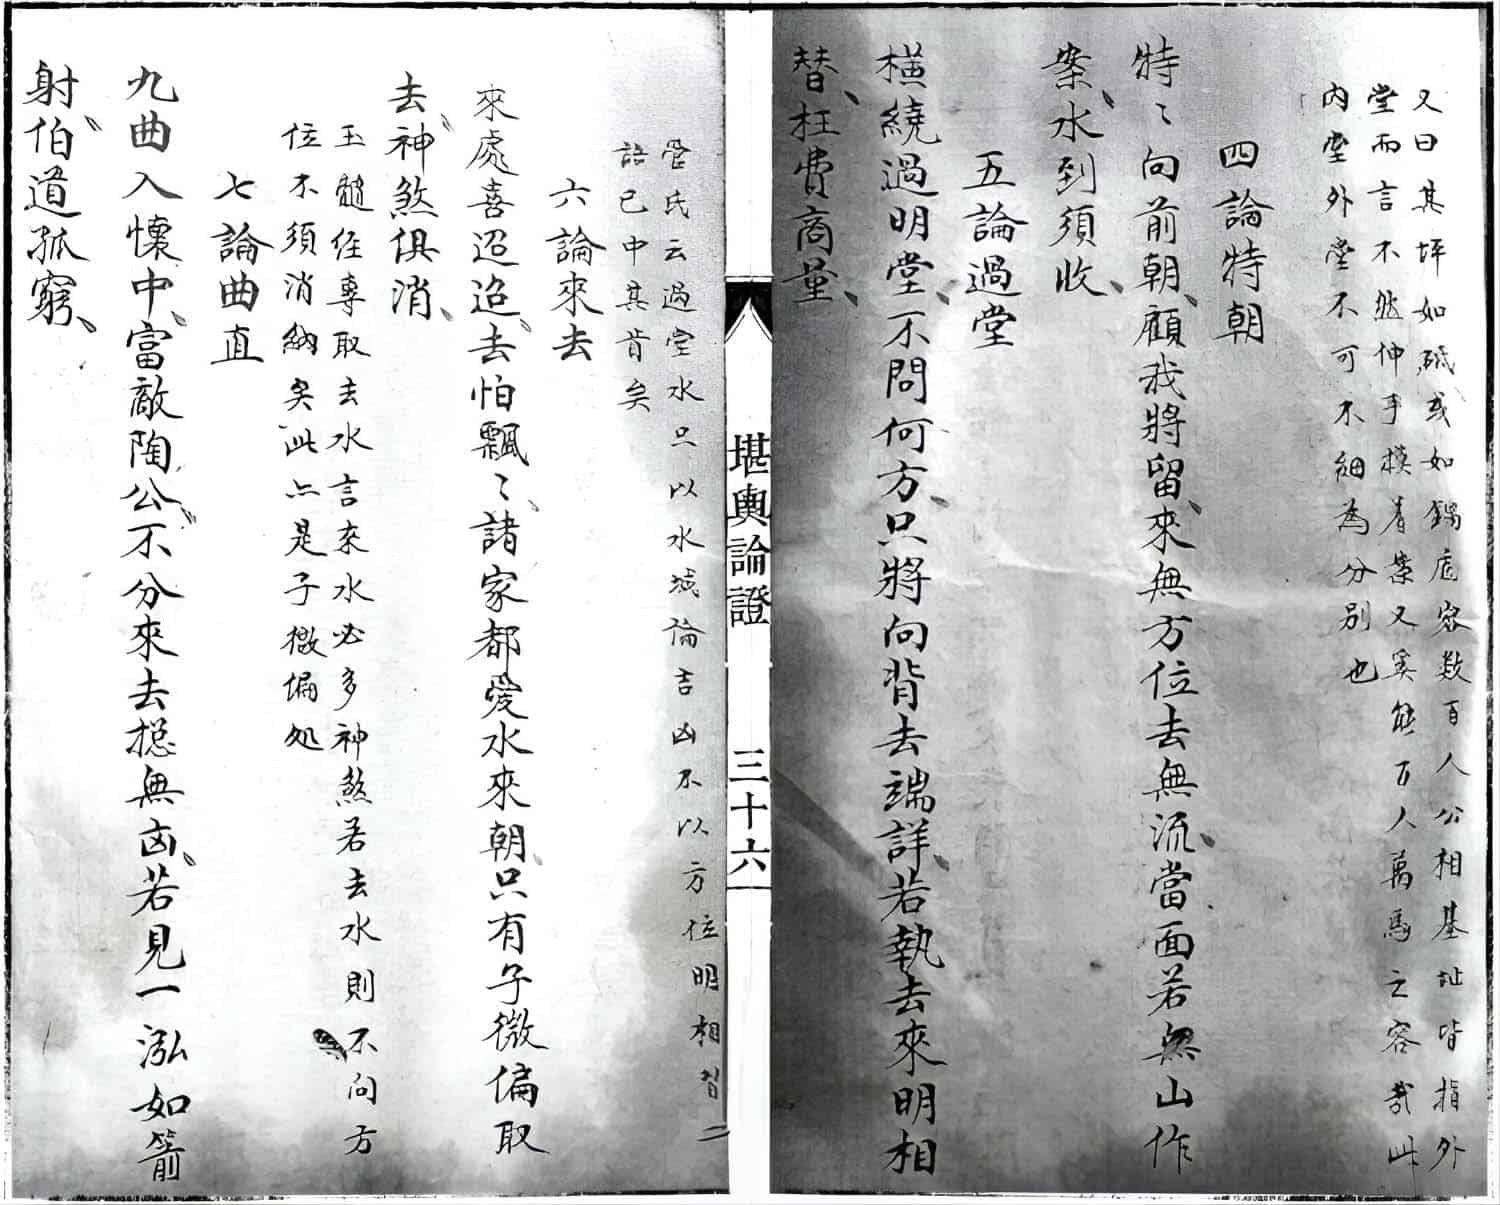 又曰其坪如砥或如鍋底容数百人公相基址皆指外
堂而言不然伸手摸着案又奚能百人萬馬之容哉此
内堂外堂不可不細為分别也
四論特朝
特〻向前朝顧我將留來無方位去無流當面若無山作
案水到須收
五論過堂
橫繞過明堂不問何方只將向背去端詳若執去來明相
替枉費商量
管氏云過堂水只以水城論吉凶不以方位明相替二
語已中其肯矣
六論來去
來處喜迢迢去怕飄〻諸家都愛水來朝只有子微偏取
去神煞俱消
玉髓經專取去水言來水必多神煞若去水則不向方
位不須消納矣此亦是子微偏処
七論曲直
九曲入懷中富敵陶公不分來去摠無凶若見一泓如箭
射伯道孤窮
堪輿論證
三十六